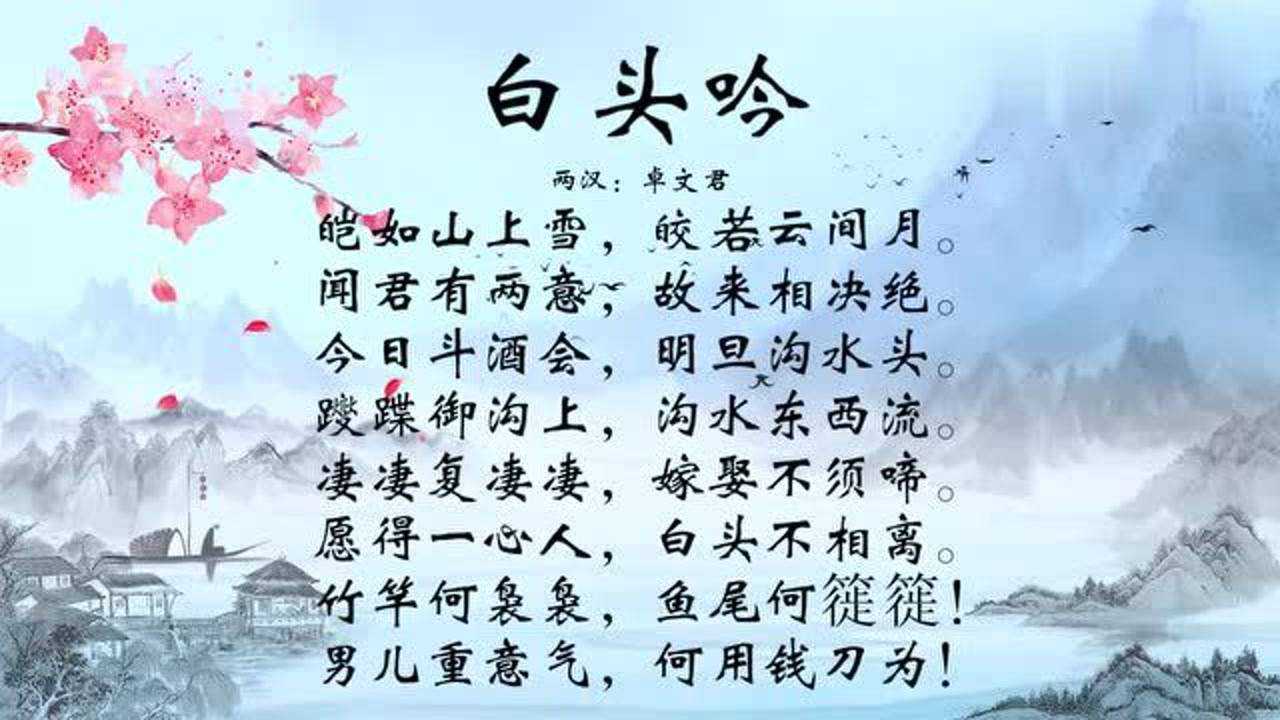 白头吟
两汉：卓文君
皑如山上雪，皎若云间月。
闻君有两意，故来相决绝。
今日斗酒会，明旦沟水头。
躞蹀御沟上，沟水东西流。
凄凄复凄凄，嫁娶不须啼。
愿得一心人，白头不相离。
竹竿何袅袅，鱼尾何簁簁！
男儿重意气，何用钱刀为！